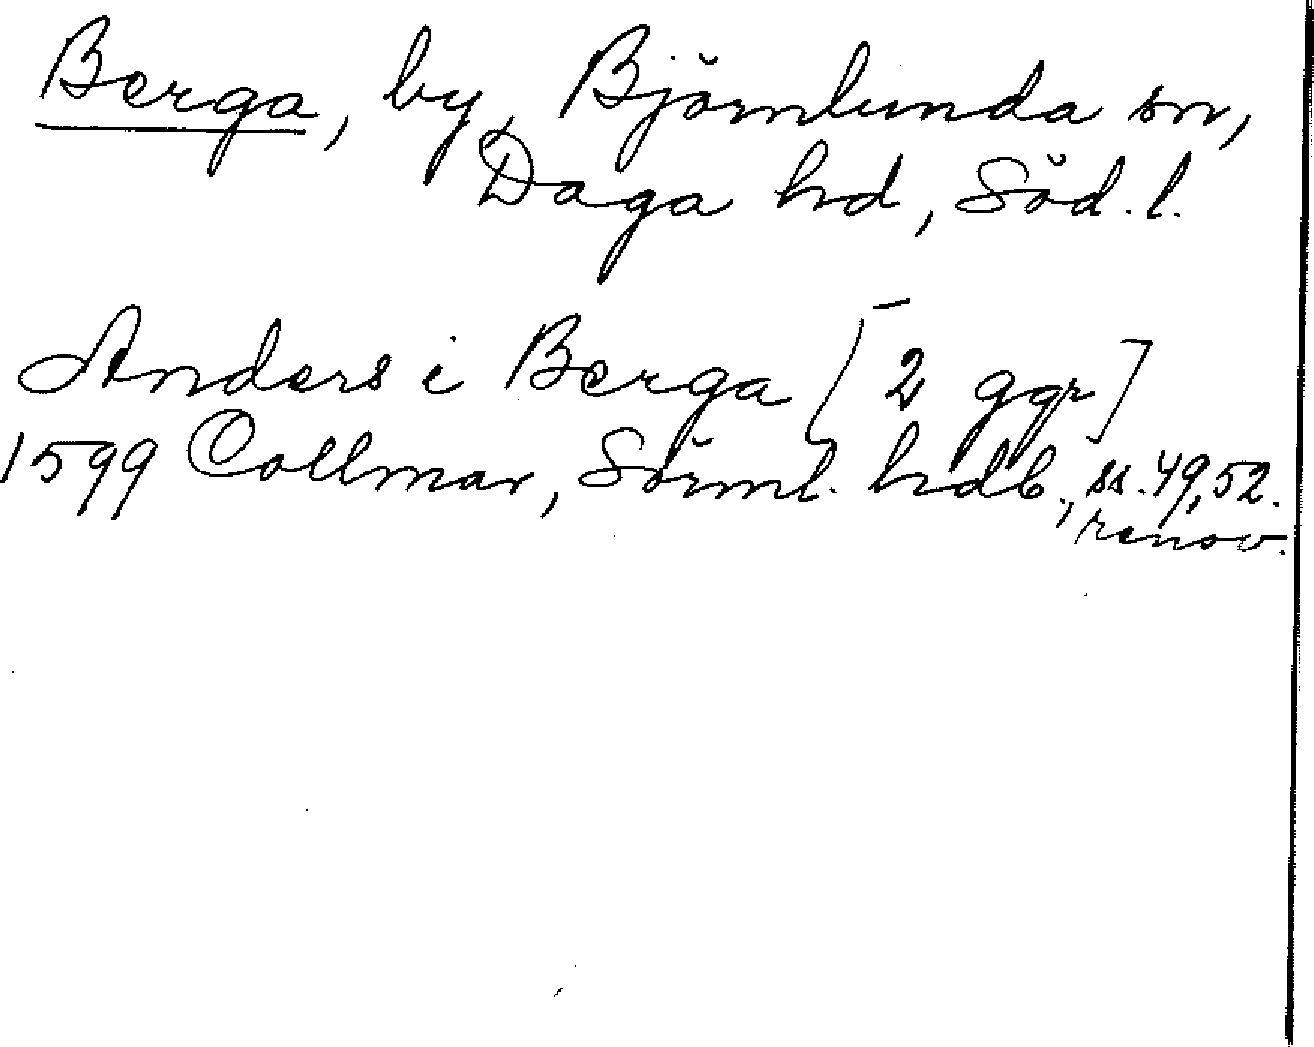 Berga, by, Björnlunda sn,
Daga hd, Söd. l.
Anders i Berga [2 ggr]
1599 Collmar, Sörml. hdb., ss. 49, 52.
renov.